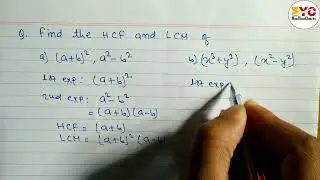 Q. Find the HCF and LCM of
a) (a+b)², a²-b²
1st exp: (a+b)²
2nd exp: a²-b²
= (a+b)(a-b)
HCF = (a+b)
LCM = (a+b)² (a-b)
b) (x³+y³), (x²-y²)
1st exp